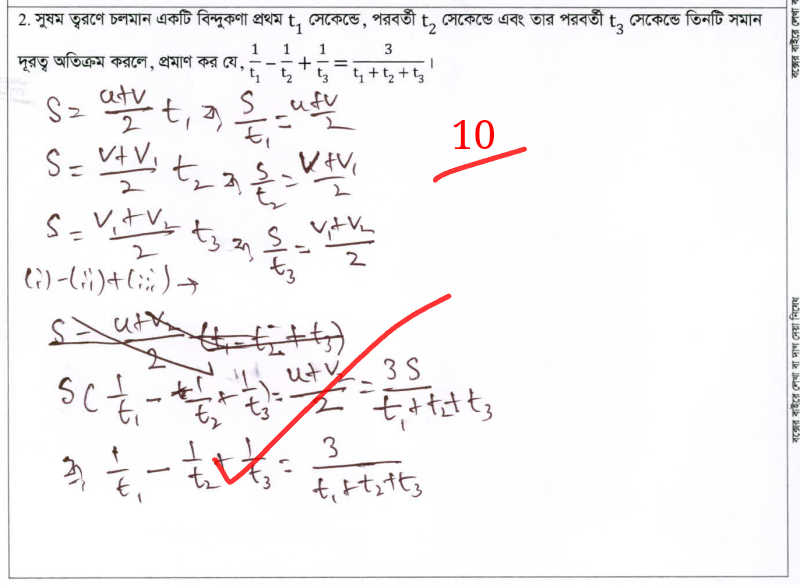 2. সুষম ত্বরণে চলমান একটি বিন্দুকণা প্রথম t₁ সেকেন্ডে, পরবর্তী t₂ সেকেন্ডে এবং তার পরবর্তী t₃ সেকেন্ডে তিনটি সমান
দূরত্ব অতিক্রম করলে, প্রমাণ কর যে, 1/t₁ − 1/t₂ + 1/t₃ = 3/(t₁ + t₂ + t₃)।
S = (u+v)/2 t₁ ⇒ S/t₁ = (u+v)/2
10
S = (v+v₁)/2 t₂ ⇒ S/t₂ = (v+v₁)/2
S = (v₁+v₂)/2 t₃ ⇒ S/t₃ = (v₁+v₂)/2
(i)-(ii)+(iii) →
S = (u+v₂)/2 (t₁ - t₂ + t₃)
S(1/t₁ - 1/t₂ + 1/t₃) = (u+v₂)/2 = 3S/(t₁+t₂+t₃)
⇒ 1/t₁ - 1/t₂ + 1/t₃ = 3/(t₁+t₂+t₃)
বক্সের বাইরে লেখা বা দাগ দেয়া নিষেধ